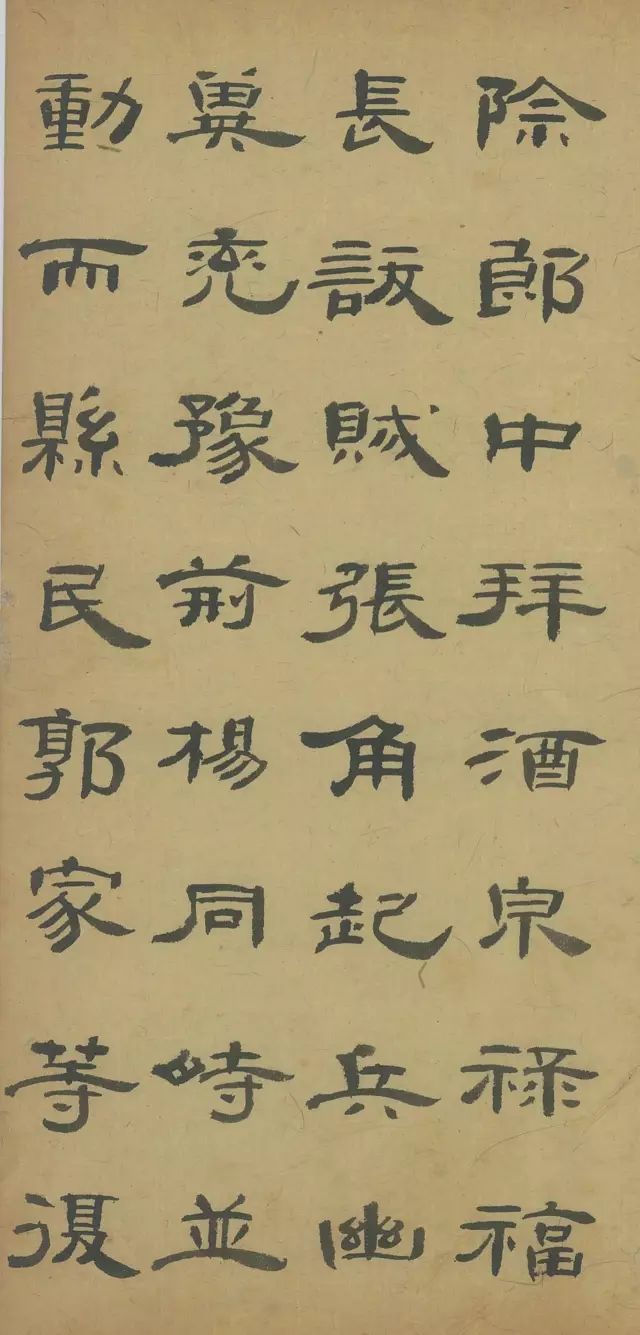 除郎中拜酒泉祿福
長訞賊張角起兵幽
冀兗豫荊楊同時並
動而縣民郭家等復